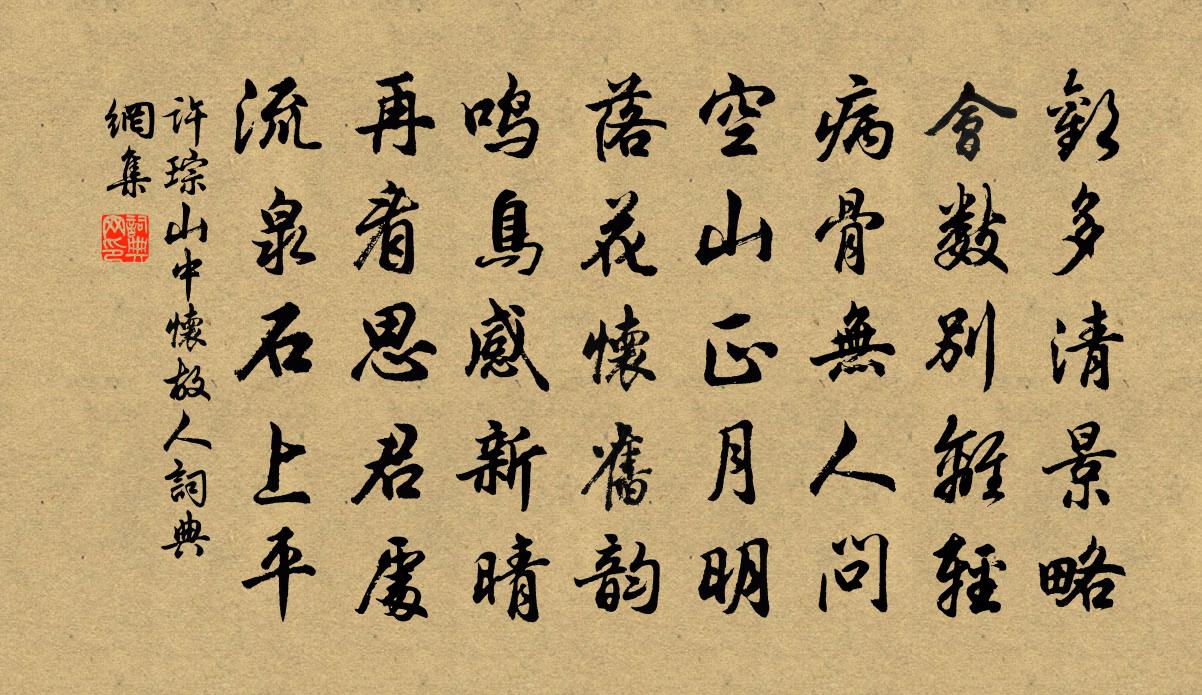 歡多清景略
會數別離輕
病骨無人問
空山正月明
落花懷舊韵
鳴鳥感新晴
再看思君處
流泉石上平
许琮山中懷故人詞典
網集
詞典网印